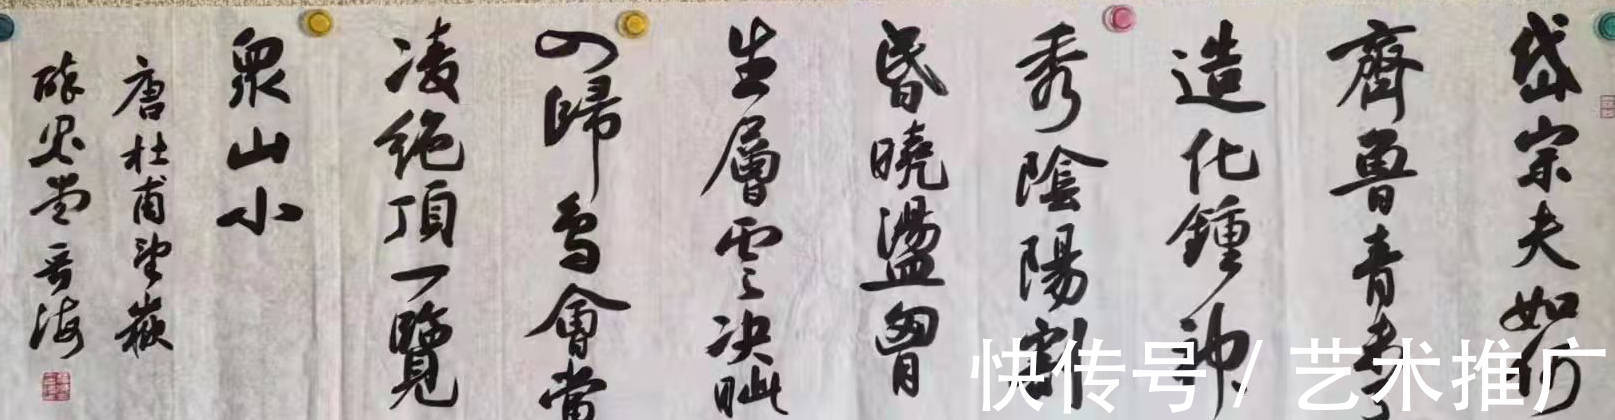 岱宗夫如何
齊魯青未
造化鍾神
秀陰陽割
昏曉盪胷
生層雲决眦
入歸鳥會當
凌絶頂一覽
衆山小
唐杜甫望嶽
堂晋海
快传号 / 艺术推广